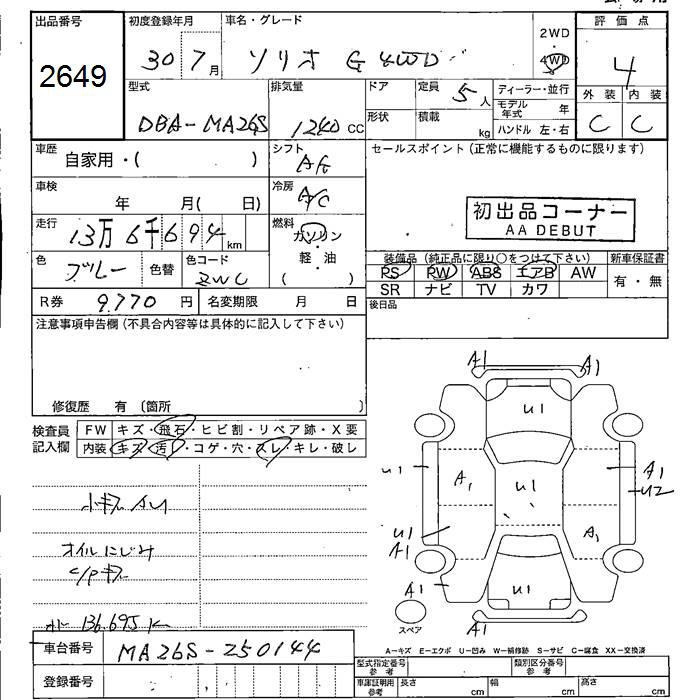 出品番号 初度登録年月 車名・グレード 2WD 評価点
2649 30 7月 ソリオ G 4WD 4WD 4
型式 排気量 ドア 定員 5人 ディーラー・並行 外装 内装
DBA-MA26S 1240 CC 形状 積載 kg モデル年式 年 C C
ハンドル 左・右
車歴 自家用・( ) シフト AF セールスポイント(正常に機能するものに限ります)
車検 年 月( 日) 冷房 A/C
初出品コーナー
AA DEBUT
走行 13万6千694km 燃料 ガソリン
軽・油
( )
色 ブルー 色替 色コード ZWC 装備品(純正品に限り○をつけて下さい) 新車保証書
PS PW ABS エアB AW 有・無
SR ナビ TV カワ
R券 9,770円 名変期限 月 日 後日品
注意事項申告欄(不具合内容等は具体的に記入して下さい)
修復歴 有 〔箇所 〕
検査員記入欄 FW キズ・飛石・ヒビ割・リペア跡・X要
内装 キズ・汚・コゲ・穴・スレ・キレ・破レ
A1 A1
U1
U1 A1 U1 A1 U2
U1 A1 A1
A1 U1
A1
スペア
小キズ AU
オイルにじみ
C/Pキズ
136,695K
A-キズ E-エクボ U-凹み W-補修跡 S-サビ C-腐食 XX-交換済
車台番号 MA26S-250144
登録番号
型式指定番号 参考 類別区分番号 参考
車庫証明用 参考 長さ cm 幅 cm 高さ cm